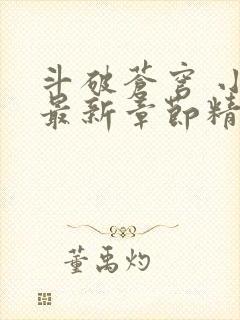 斗破苍穹 小
最新章节精
董禹灼